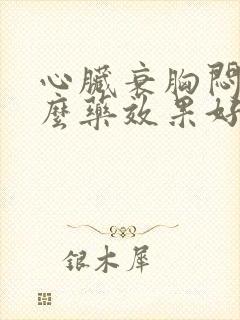 心臟衰胸悶
麼藥效果好
银木犀